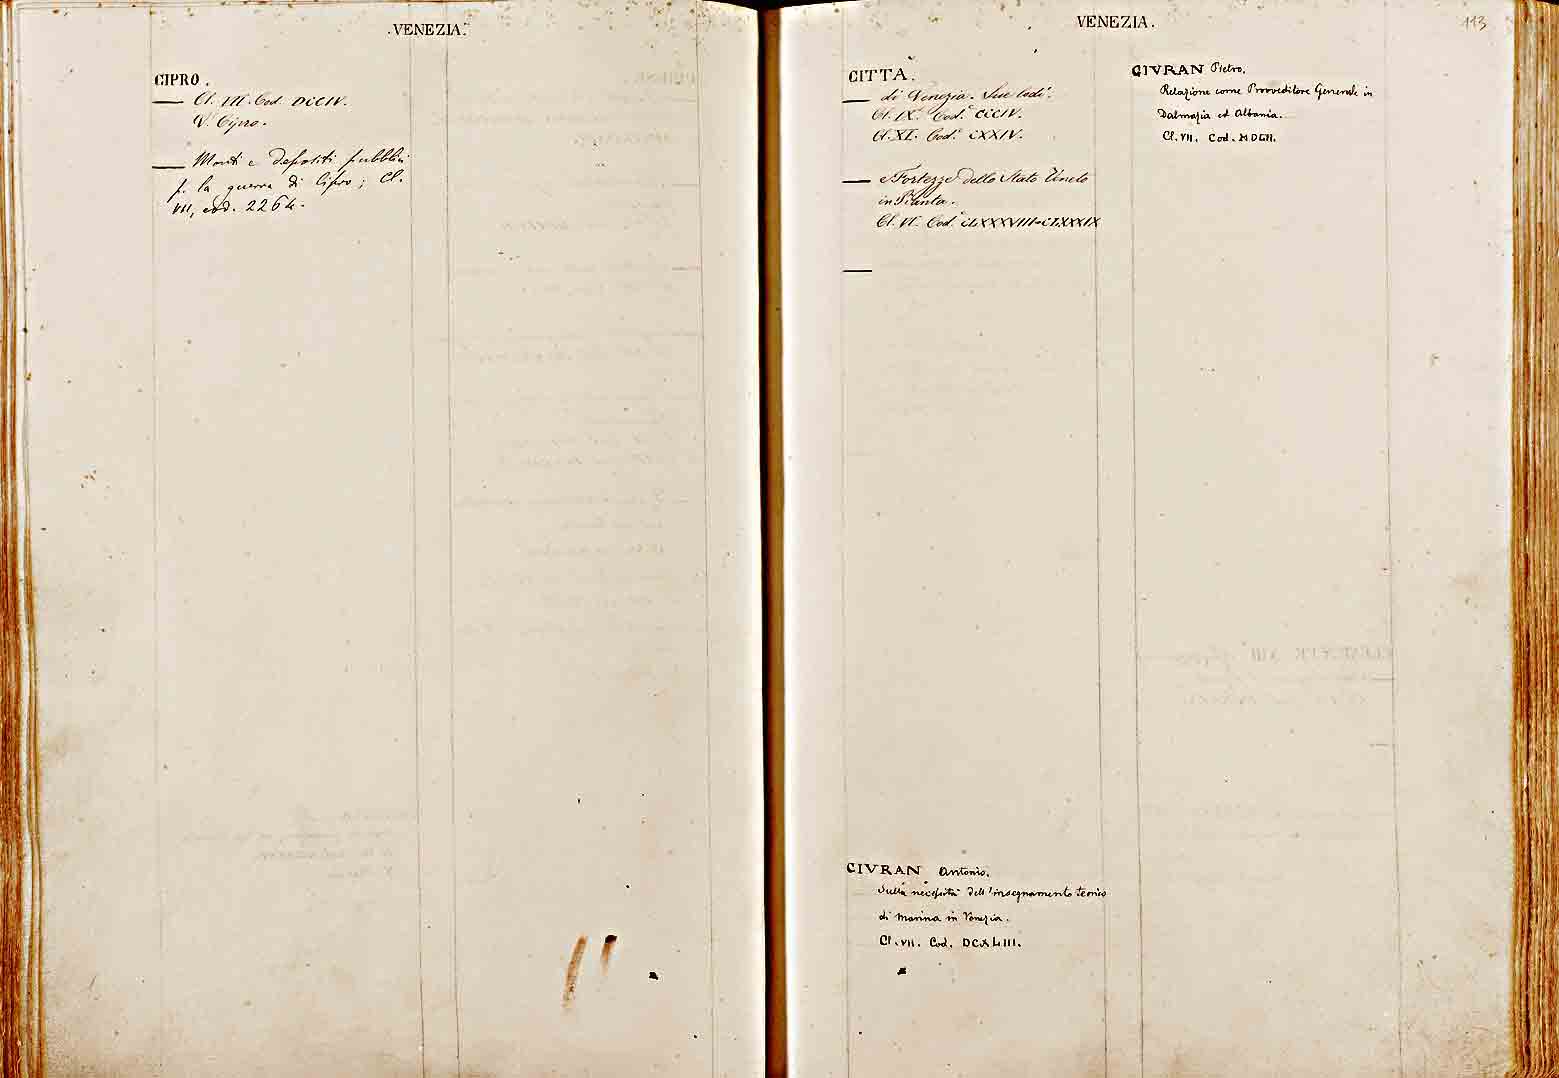 .VENEZIA.
CIPRO.
— Cl. VII. Cod. DCCIV.
V. Cipro.
— Monti e depositi pubblici
p. la guerra di Cipro; Cl.
VII, cod. 2264.
VENEZIA.
113
CITTÀ.
— di Venezia. Sue lodi.
Cl. IX. Cod.e CCCIV.
Cl. XI. Cod.e CXXIV.
— e Fortezze dello Stato Veneto
in Pianta.
Cl. VI. Cod.e CLXXXVIII-CLXXXIX
—
CIVRAN Antonio.
Sulla necessità dell'insegnamento teorico
di Marina in Venezia.
Cl. VII. Cod. DCXLIII.
CIVRAN Pietro.
Relazione come Provveditore Generale in
Dalmazia ed Albania.
Cl. VII. Cod. MDCII.